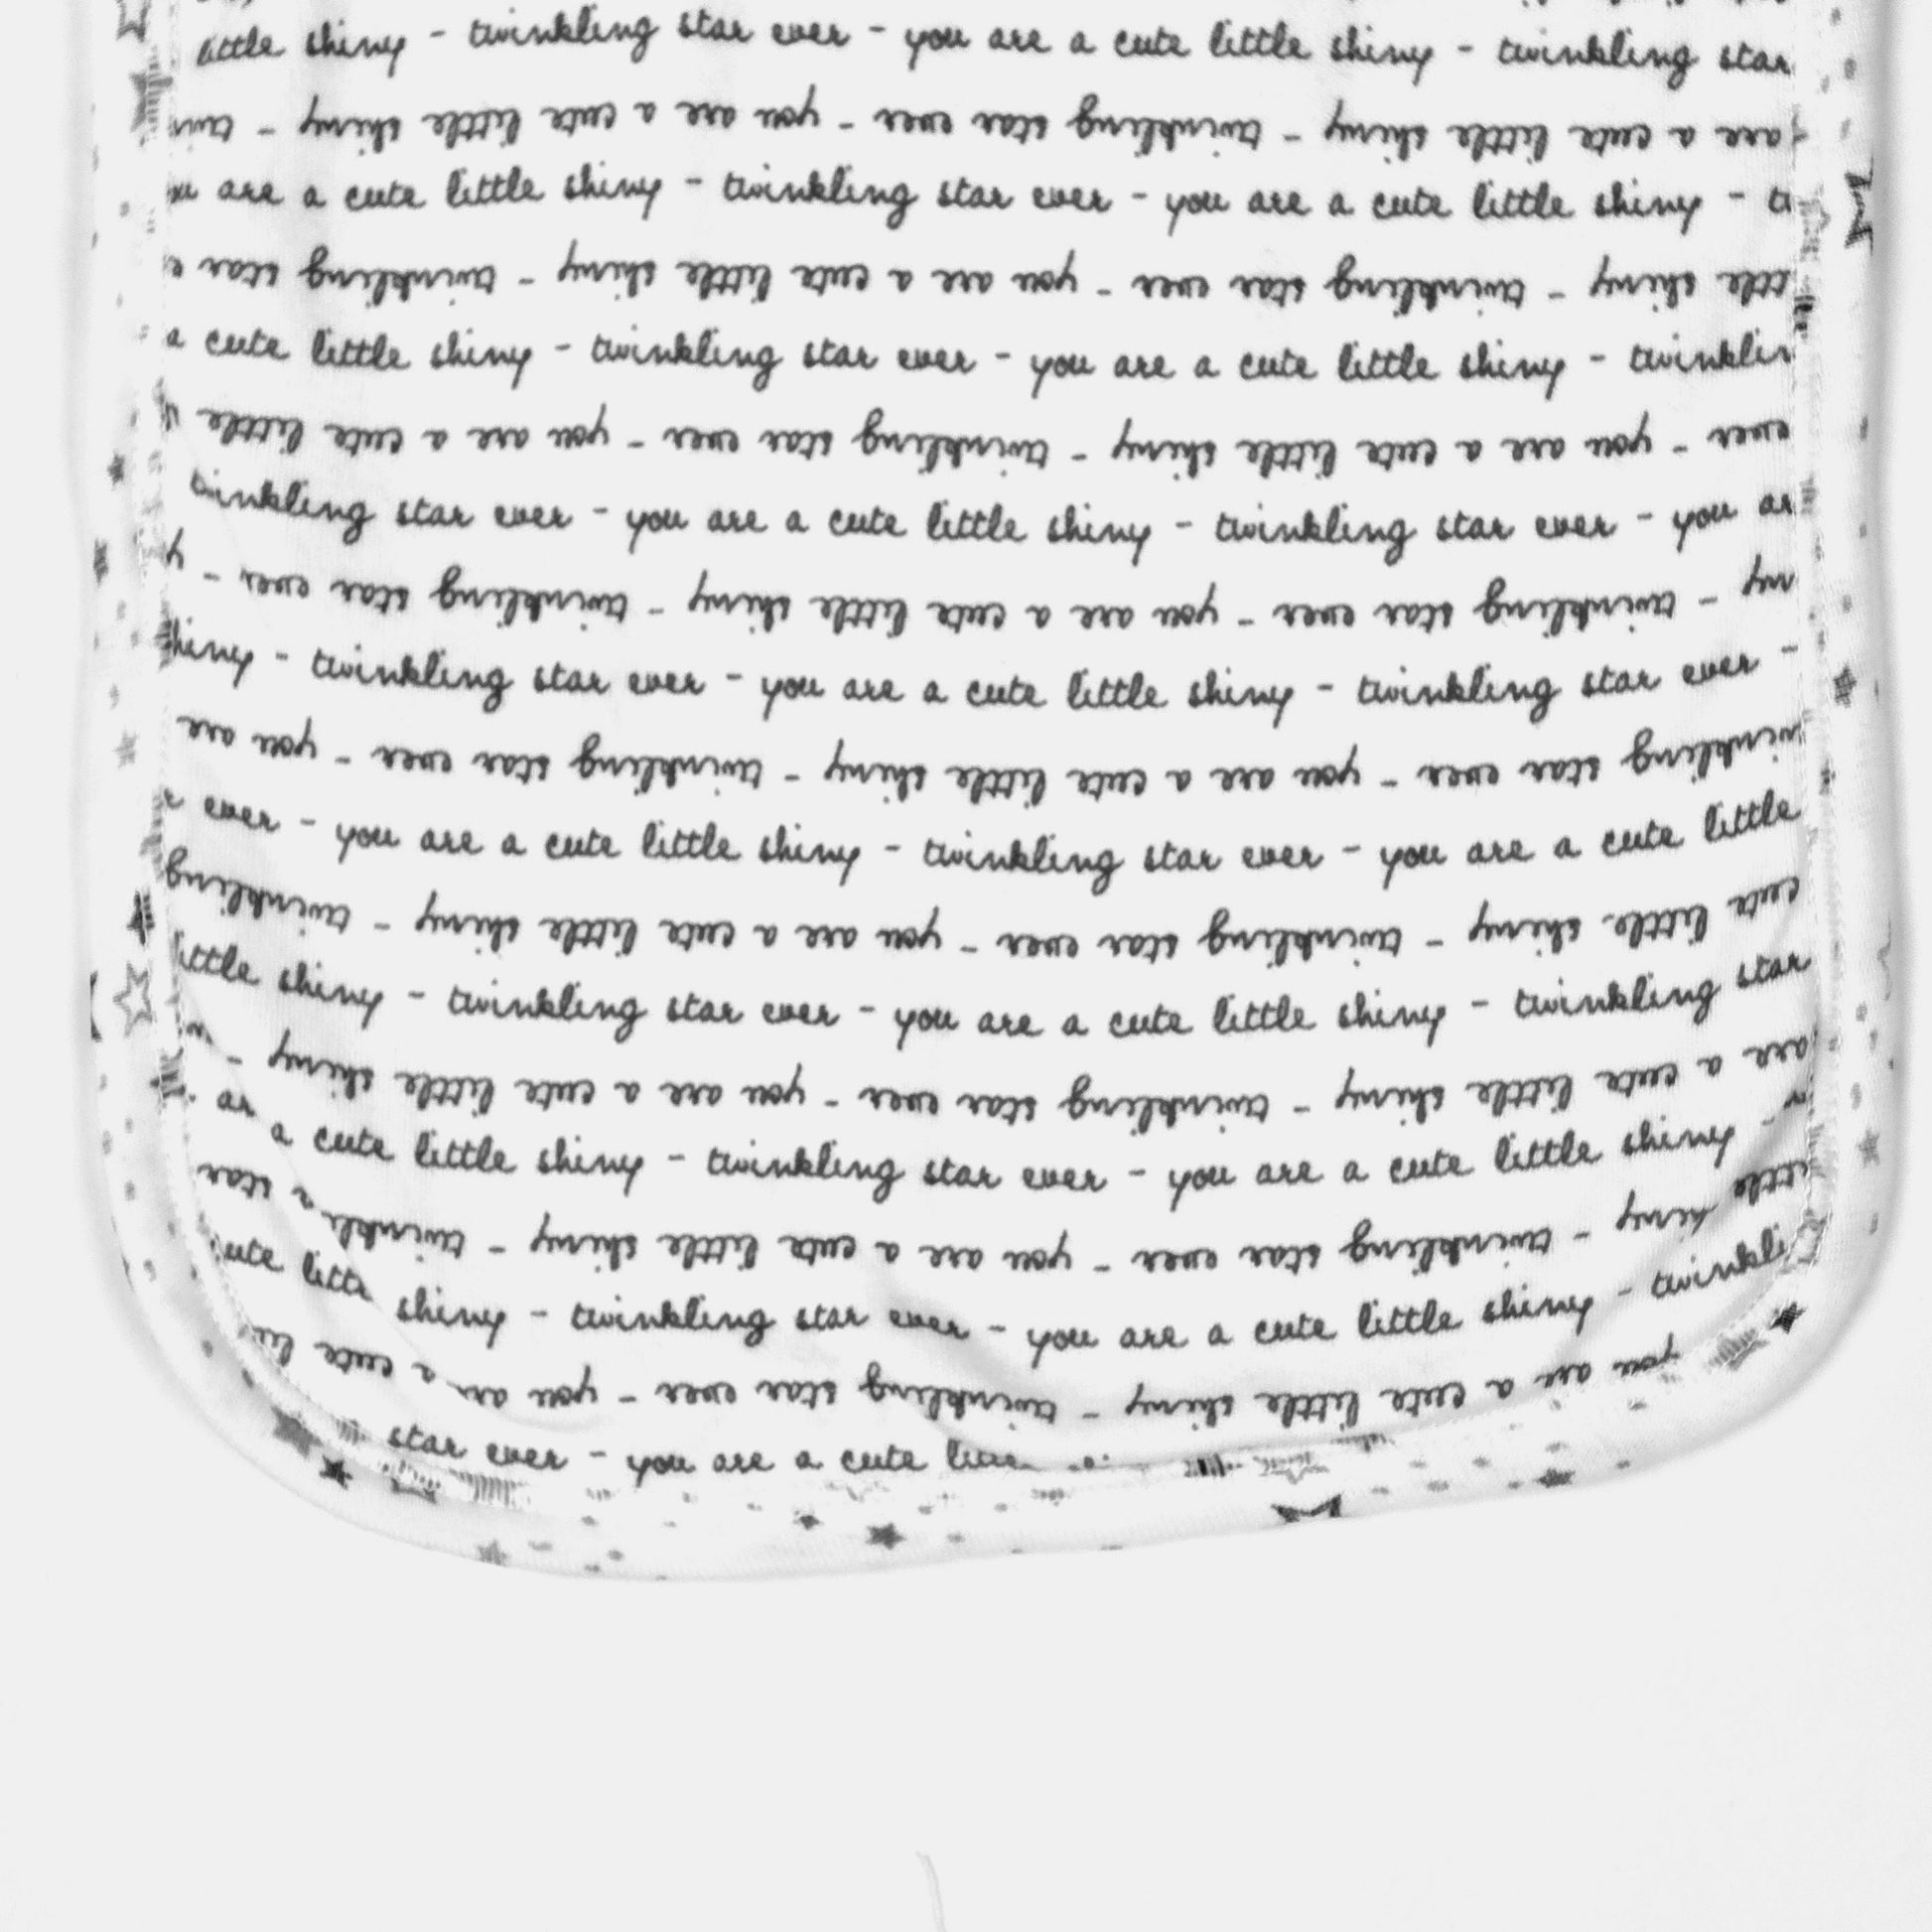 little shiny - twinkling star ever - you are a cute little shiny - twinkling star
are a cute little shiny - twinkling star ever - you are a cute little shiny - twin
ou are a cute little shiny - twinkling star ever - you are a cute little shiny - tw
ttle shiny - twinkling star ever - you are a cute little shiny - twinkling star e
a cute little shiny - twinkling star ever - you are a cute little shiny - twinklin
ever - you are a cute little shiny - twinkling star ever - you are a cute little
twinkling star ever - you are a cute little shiny - twinkling star ever - you ar
ny - twinkling star ever - you are a cute little shiny - twinkling star ever - y
shiny - twinkling star ever - you are a cute little shiny - twinkling star ever -
winkling star ever - you are a cute little shiny - twinkling star ever - you are
r ever - you are a cute little shiny - twinkling star ever - you are a cute little
cute little shiny - twinkling star ever - you are a cute little shiny - twinkling
little shiny - twinkling star ever - you are a cute little shiny - twinkling star
are a cute little shiny - twinkling star ever - you are a cute little shiny -
ar a cute little shiny - twinkling star ever - you are a cute little shiny -
little hiny - twinkling star ever - you are a cute little shiny - twinklin star
cute little shiny - twinkling star ever - you are a cute little shiny - twinkli
you are a cute little shiny - twinkling star ever - you are a cute li
star ever - you are a cute little